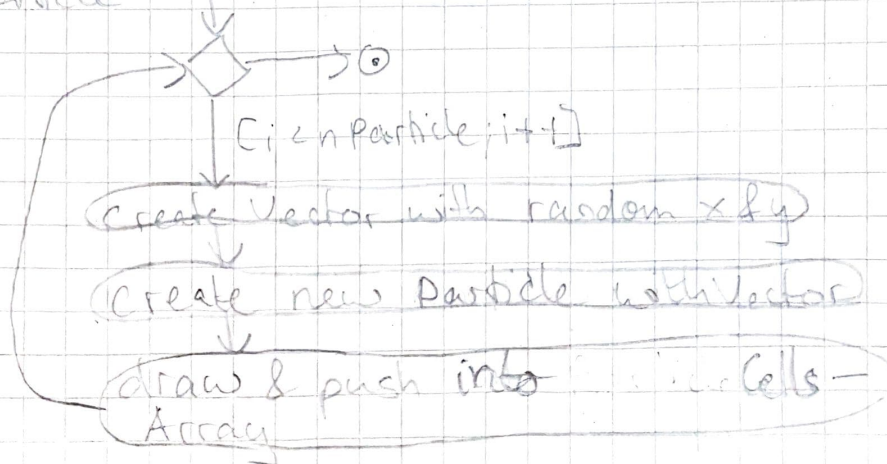 [i < nParticle; i++]
create Vector with random x & y
create new Particle with Vector
draw & push into Cells-
Array